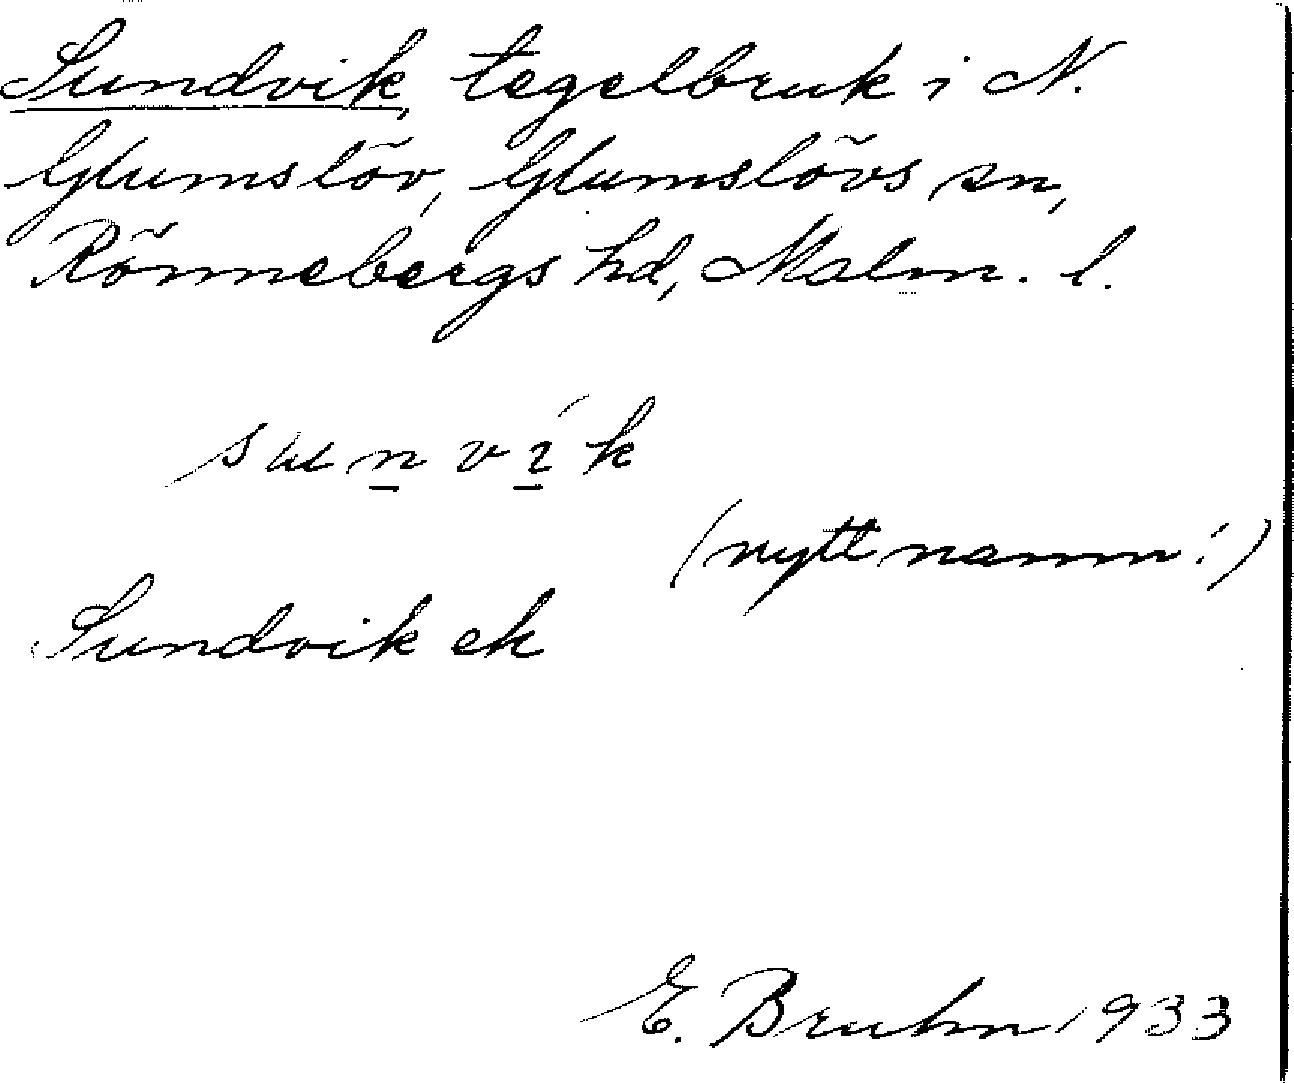 Sundvik, tegelbruk i N.
Glumslöv, Glumslövs sn,
Rönnebergs hd, Malm. l.
sunvík
(nytt namn!)
Sundvik ek
E. Bruhn 1933